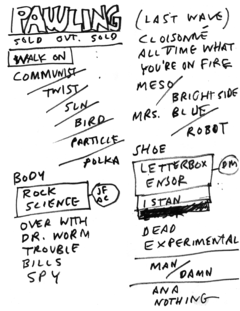 PAWLING
SOLD OUT. SOLD
WALK ON
COMMUNIST
TWIST
SUN
BIRD
PARTICLE
POLKA
BODY
ROCK
SCIENCE
JF
AC
OVER WITH
DR. WORM
TROUBLE
BILLS
SPY
(LAST WAVE)
CLOISONNÉ
ALL TIME WHAT
YOU'RE ON FIRE
MESO
BRIGHTSIDE
MRS. BLUE
ROBOT
SHOE
LETTERBOX
ENSOR
DM
ISTAN
DEAD
EXPERIMENTAL
MAN
DAMN
ANA
NOTHING